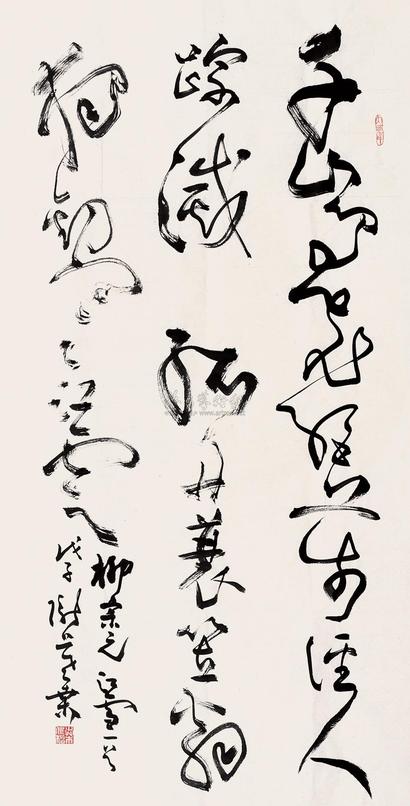 千山鸟飞绝万径人
踪灭孤舟蓑笠翁
独钓寒江雪
柳宗元江雪一首
戊子